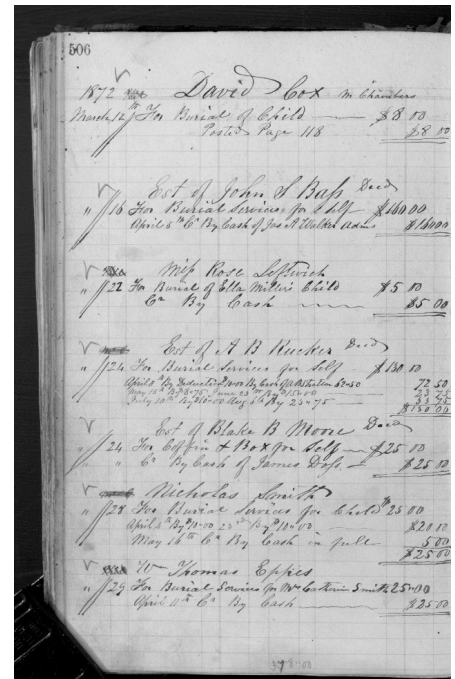 506
1872 David Cox W Chambers
March 12th For Burial of Child $8 00
Posted Page 118 $8 00
Est of John S Bass Decd
" 16 For Burial Services for Self $160 00
April 5th Cr By Cash of Jas A Walker Admr $160 00
Miss Rose Leftwich
" 22 For Burial of Ella Millers Child $5 00
Cr By Cash $5 00
Est of A B Rucker Decd
" 24 For Burial Services for Self $130 00
April 8th By Deduction 10.00 By Cash of 62.50 72 50
May 18th By 8.75 June 23rd By $15.00 23 75
July 10th By $10.00 Aug 5th By 23.75 33 75
$130 00
Est of Blake B Moore Decd
" 24 For Coffin & Box for Self $25 00
" " Cr By Cash of James Doss $25 00
Nicholas Smith
" 28 For Burial Services for Child $25 00
April 5th By $10.00 23rd By $10.00 $20 00
May 16th Cr By Cash in full 5 00
$25 00
Wm Thomas Eppes
" 29 For Burial Services for Mrs Catherin Smith 25.00
April 11th Cr By Cash $25 00
378.00